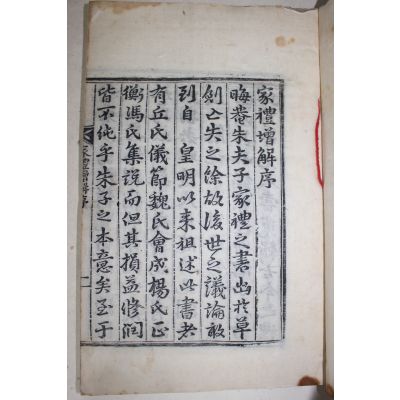 家禮增解序
晦菴朱夫子家禮之書出於草
刱亡失之餘故後世之議論敢
到自 皇明以來祖述此書者
有丘氏儀節魏氏會成楊氏正
衡馮氏集說而但其損益修潤
皆不純乎朱子之本意矣至于